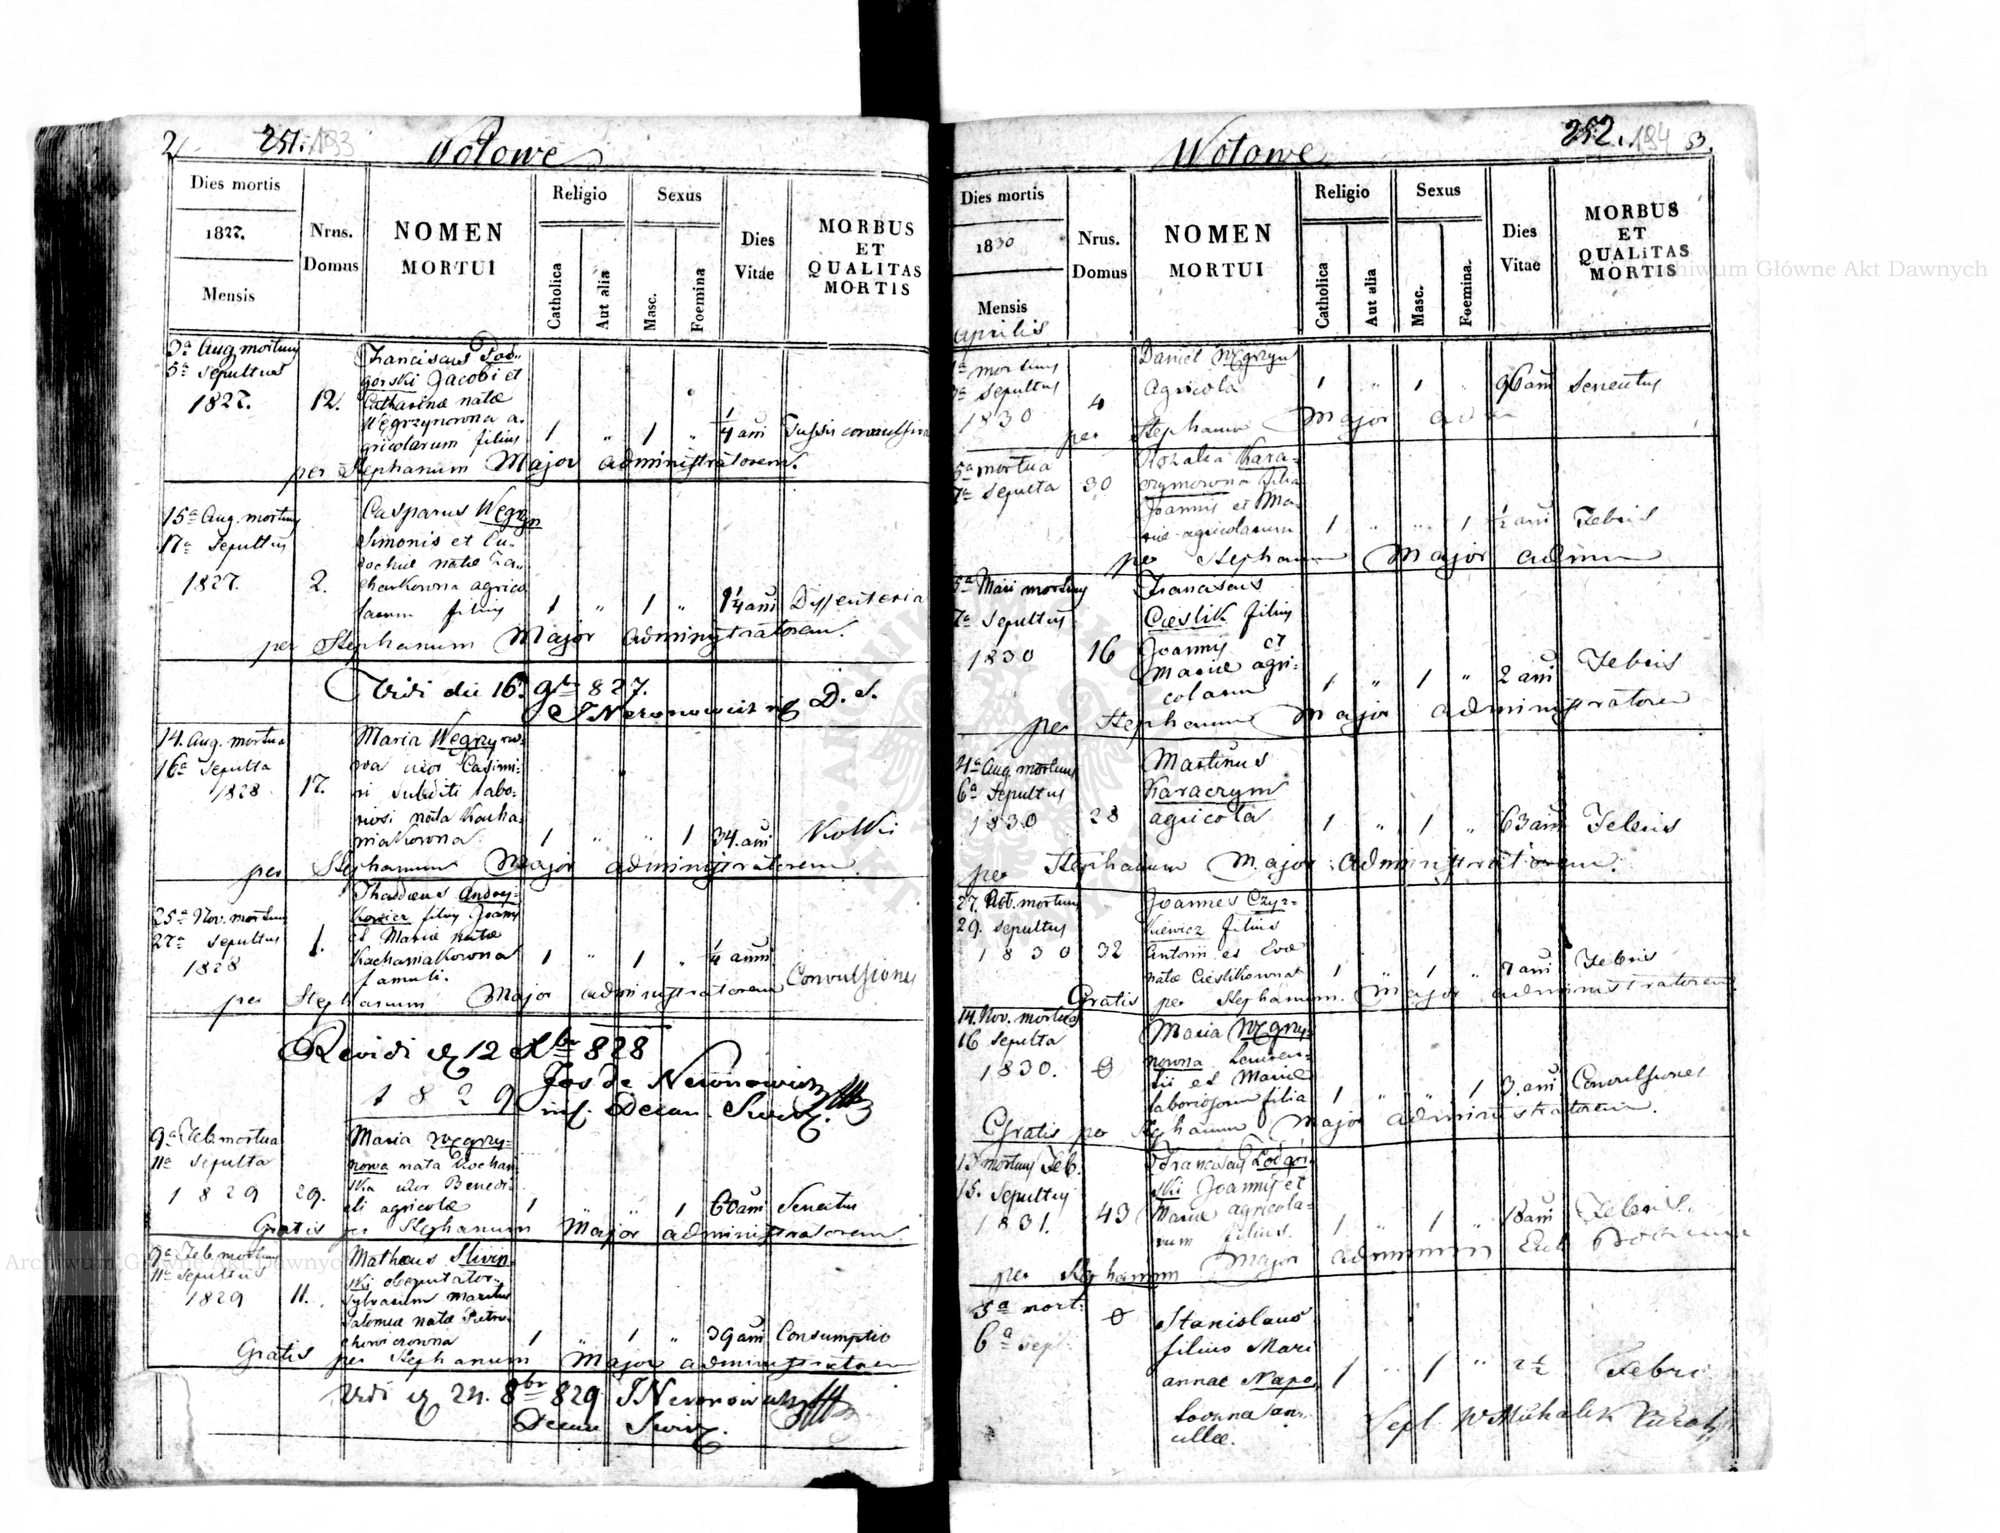 2
251. 193
Wolowe
Dies mortis
1827.
Mensis
Nrus.
Domus
NOMEN
MORTUI
Religio
Catholica
Aut alia
Sexus
Masc.
Foemina
Dies
Vitae
MORBUS
ET
QUALITAS
MORTIS
3a Aug mortuus
5a Sepultus
1827.
12.
Franciscus Pod-
gorski Jacobi et
Catharinae natae
Węgrzynowna a-
gricolarum filius
1 " 1 " 1/4 anni Tussis convulsiva
per Stephanum Major administratorem.
15a Aug. mortuus
17a Sepultus
1827.
2.
Casparus Węgrzyn
Simonis et Eu-
dochiae natae
agrico
larum filius
1 " 1 " 1 1/4 anni Dyssenteria
per Stephanum Major administratorem.
Vidi die 16. 9br 827.
J Neronowicz
14. Aug. mortua
16a Sepulta
1828
17.
Maria Węgrzyno-
wa uxor Casimi-
ri subditi labo-
riosi nata Kocha-
niakowna
1 " " 1 34. anni Kolki
per Stephanum Major administratorem.
25a Nov. mortuus
27a Sepultus
1828
1.
Thadaeus Andrzy-
kowicz filius Joannis
et Mariae natae
Kochaniakowna
famuli.
1 " 1 " 1/4 anni Convulsiones
per Stephanum Major administratorem
Revidi 12 Xbr 828
Jos de Neronowicz
1829
9a Feb. mortua
11a Sepulta
1829
29.
Maria Węgrzy-
nowa nata Kochan
ska uxor Benedi-
cti agricolae
1 " " 1 60 anni Senectus
Gratis per Stephanum Major administratorem.
9a Feb. mortuus
11a Sepultus
1829
11.
Matheus Sliwin
ski
Sylvarum maritus
Salomeae natae Pietru-
1 " 1 " 39 anni Consumptio
Gratis per Stephanum Major administratorem
Vidi 24. 8br 829 J Neronowicz
252. 194 3.
Wolowe
Dies mortis
1830
Mensis
Aprilis
Nrus.
Domus
NOMEN
MORTUI
Religio
Catholica
Aut alia
Sexus
Masc.
Foemina.
Dies
Vitae
MORBUS
ET
QUALITAS
MORTIS
1a mortuus
3a Sepultus
1830
4
Daniel Węgrzyn
Agricola
1 " 1 " 96 ann Senectus
per Stephanum Major
5a mortua
7a Sepulta
30
Rozalia Kara-
czymowna filia
Joannis et Ma-
riae agricolarum
1 " " 1 1/2 anni Febris
per Stephanum Major admin
5a Maii mortuus
7a Sepultus
1830
16
Franciscus
Cieslik filius
Joannis et
Mariae agri-
colarum
1 " 1 " 2 ann Febris
per Stephanum Major administratorem
4a Aug. mortuus
6a Sepultus
1830
28
Martinus
Karaczym
agricola
1 " 1 " 63 ann Febris
per Stephanum Major administratorem.
27. Oct. mortuus
29. Sepultus
1830
32
Joannes Czyz-
kiewicz filius
Antonii et Evae
natae Cieslikowna
1 " 1 " 7 anni Febris
Gratis per Stephanum Major administratorem
14. Nov. mortua
16 Sepulta
1830.
Maria Węgrzy-
nowna Lauren-
tii et Mariae
laboriosorum filia
1 " " 1 3. anni Convulsiones
Gratis per Stephanum Major administratorem.
13 mortuus Feb.
15. Sepultus
1831.
43
Franciscus Podgor-
ski Joannis et
Mariae agricola-
rum filius.
1 " 1 " 18 ann Febris.
per Stephanum Major admin
5a mort:
6a sep:
Stanislaus
filius Mari
annae Napo
an-
cillae.
1 " 1 " 2 1/2 Febri
Sepl. W Michalek
Archiwum Główne Akt Dawnych
Archiwum Główne Akt Dawnych